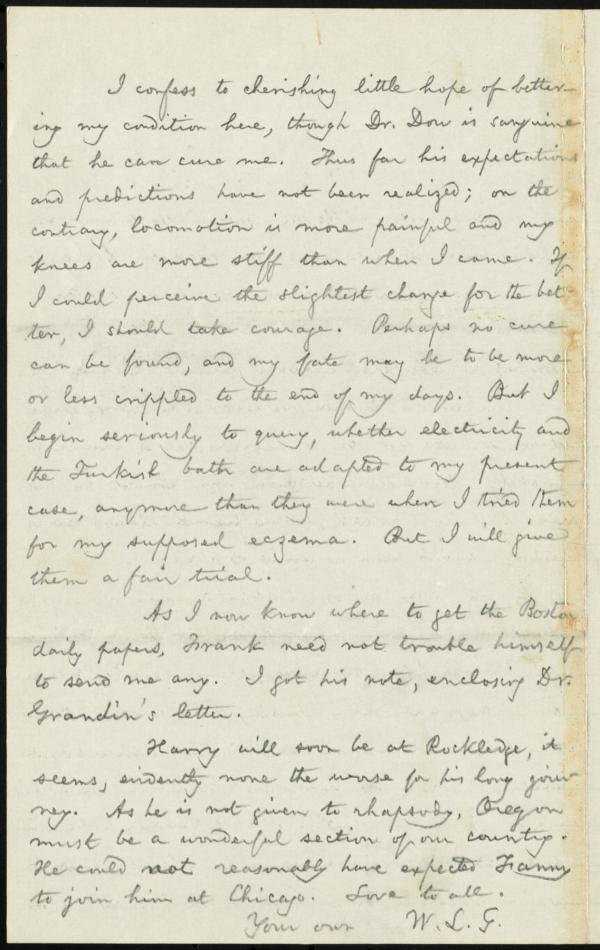 I confess to cherishing little hope of better-
ing my condition here, though Dr. Dow is sanguine
that he can cure me. Thus far his expectations
and predictions have not been realized; on the
contrary, locomotion is more painful and my
knees are more stiff than when I came. If
I could perceive the slightest change for the bet-
ter, I should take courage. Perhaps no cure
can be found, and my fate may be to be more
or less crippled to the end of my days. But I
begin seriously to query, whether electricity and
the Turkish bath are adapted to my present
case, anymore than they were when I tried them
for my supposed eczema. But I will give
them a fair trial.
As I now know where to get the Boston
daily papers, Frank need not trouble himself
to send me any. I got his note, enclosing Dr.
Grandin's letter.
Harry will soon be at Rockledge, it
seems, evidently none the worse for his long jour-
ney. As he is not given to rhapsody, Oregon
must be a wonderful section of our country.
He could not reasonably have expected Fanny
to join him at Chicago. Love to all.
Your own W. L. G.